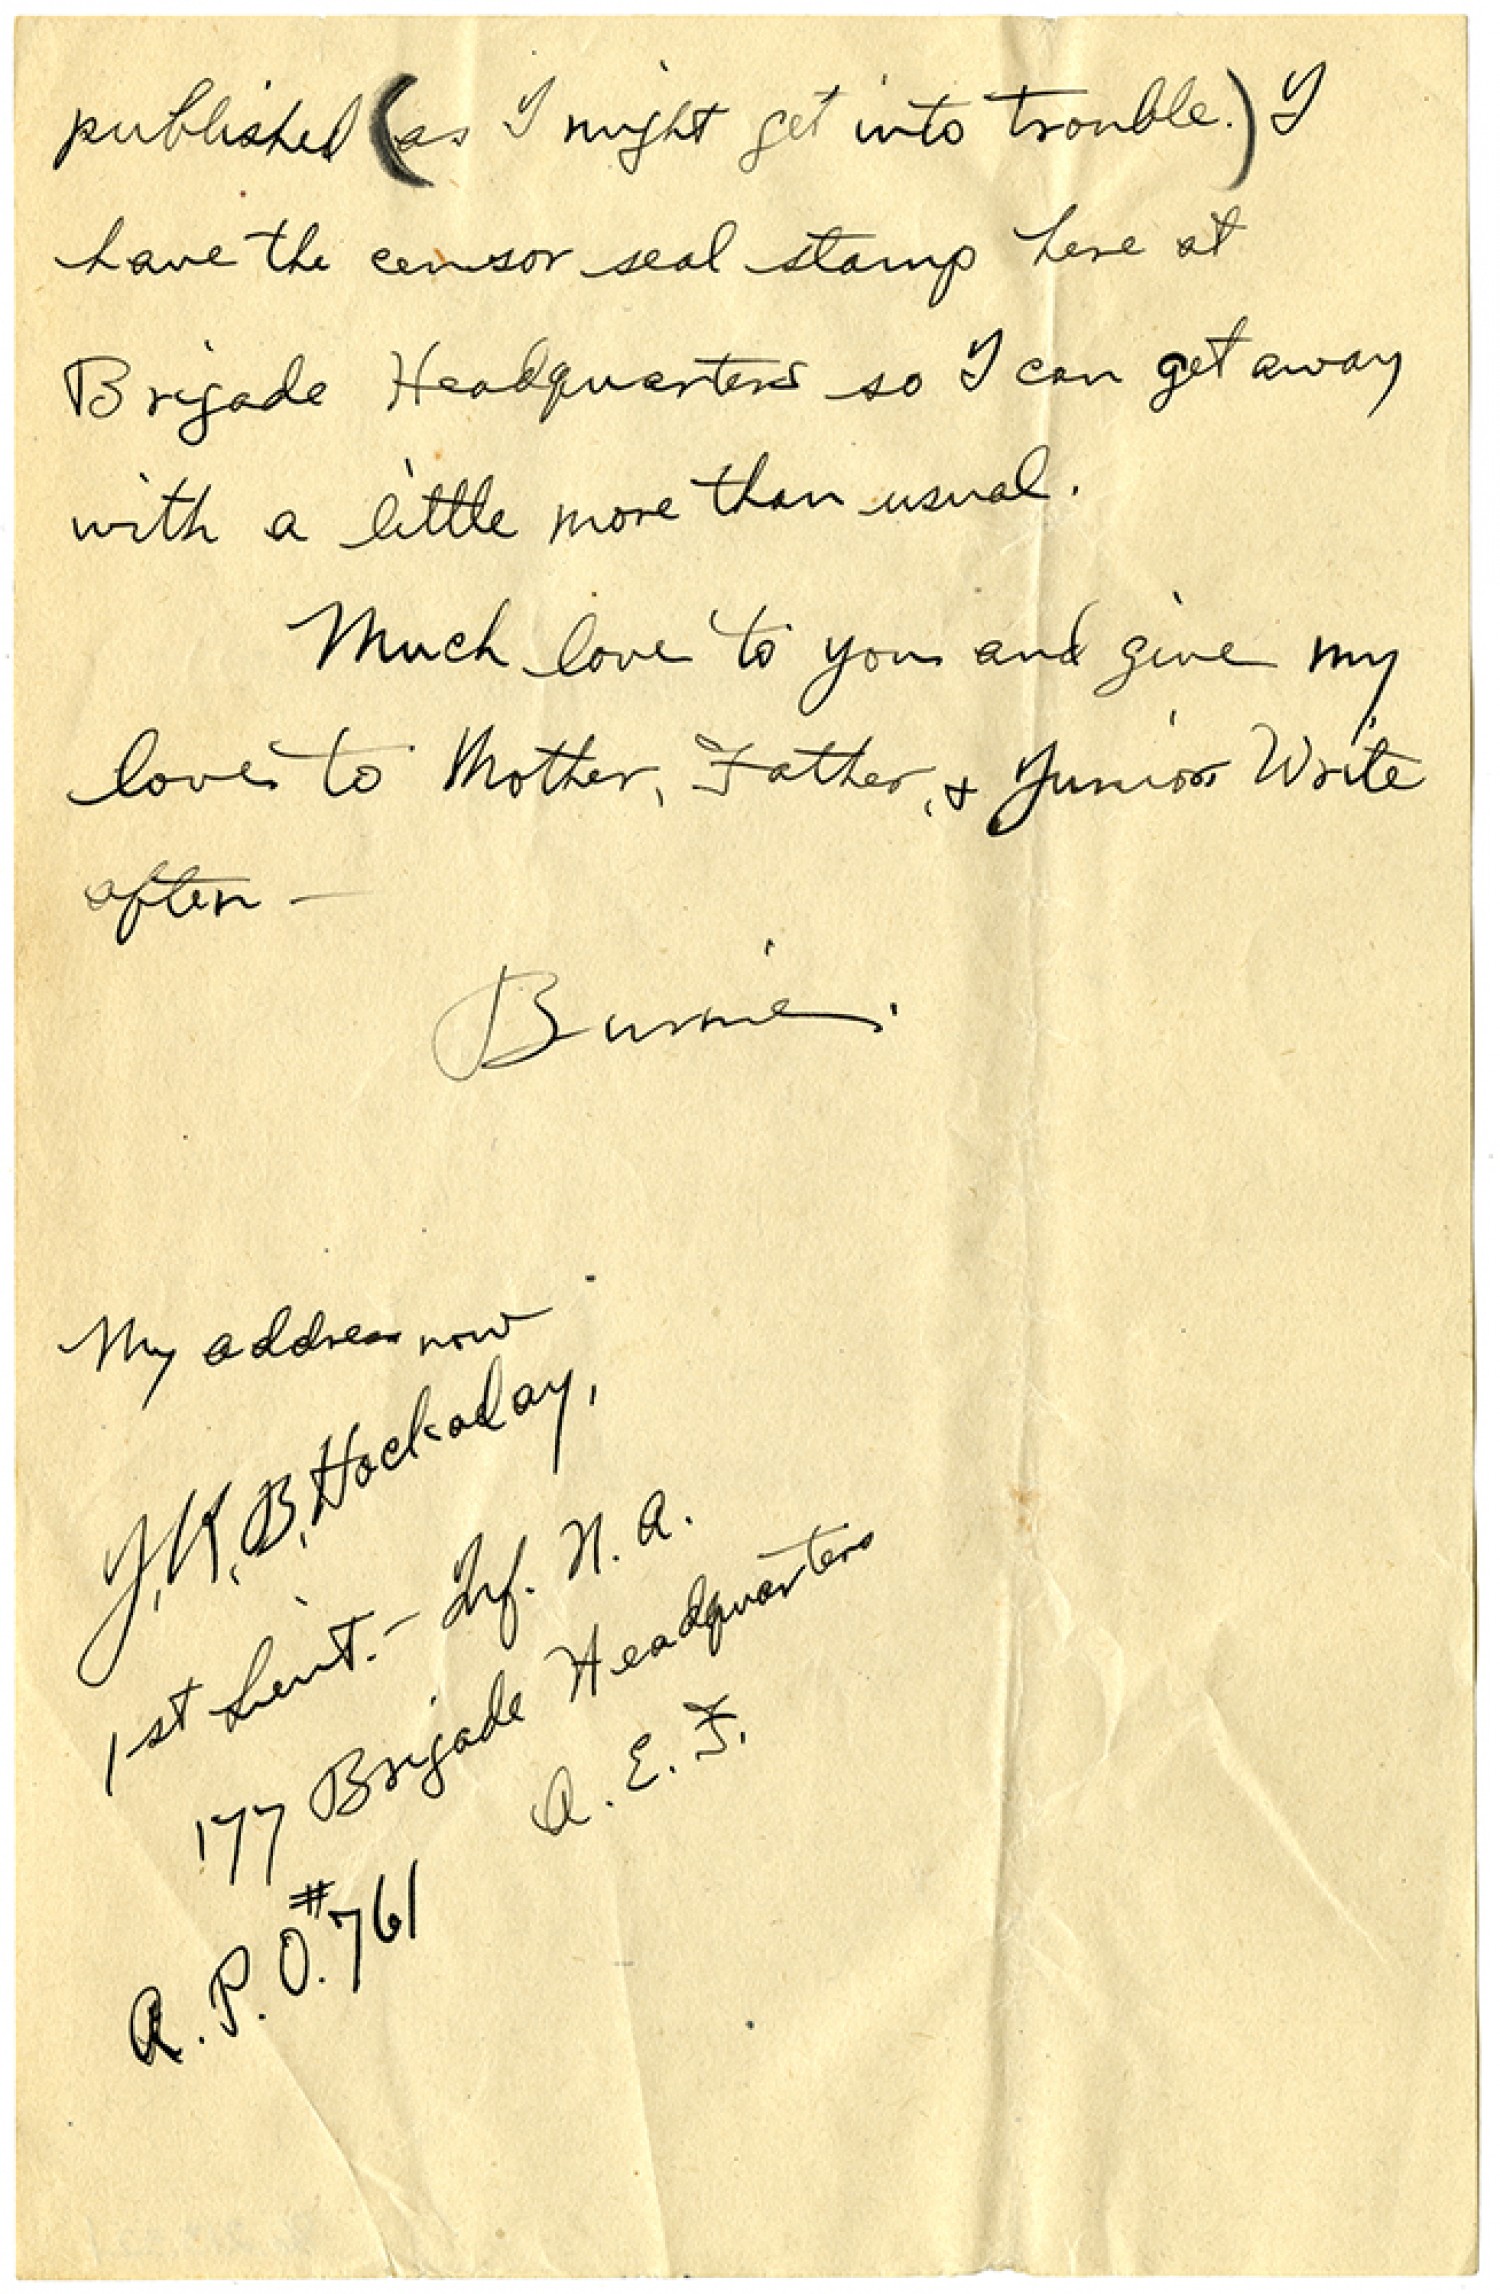 published (as I might get into trouble.) I
have the censor seal stamp here at
Brigade Headquarters so I can get away
with a little more than usual.
Much love to you and give my
love to Mother, Father, & Junior Write
often —
Burnie.
My address now
J. K. B. Hockaday,
1st Lieut. - Inf. N. A.
177 Brigade Headquarters
A. E. F.
A. P. O. #761